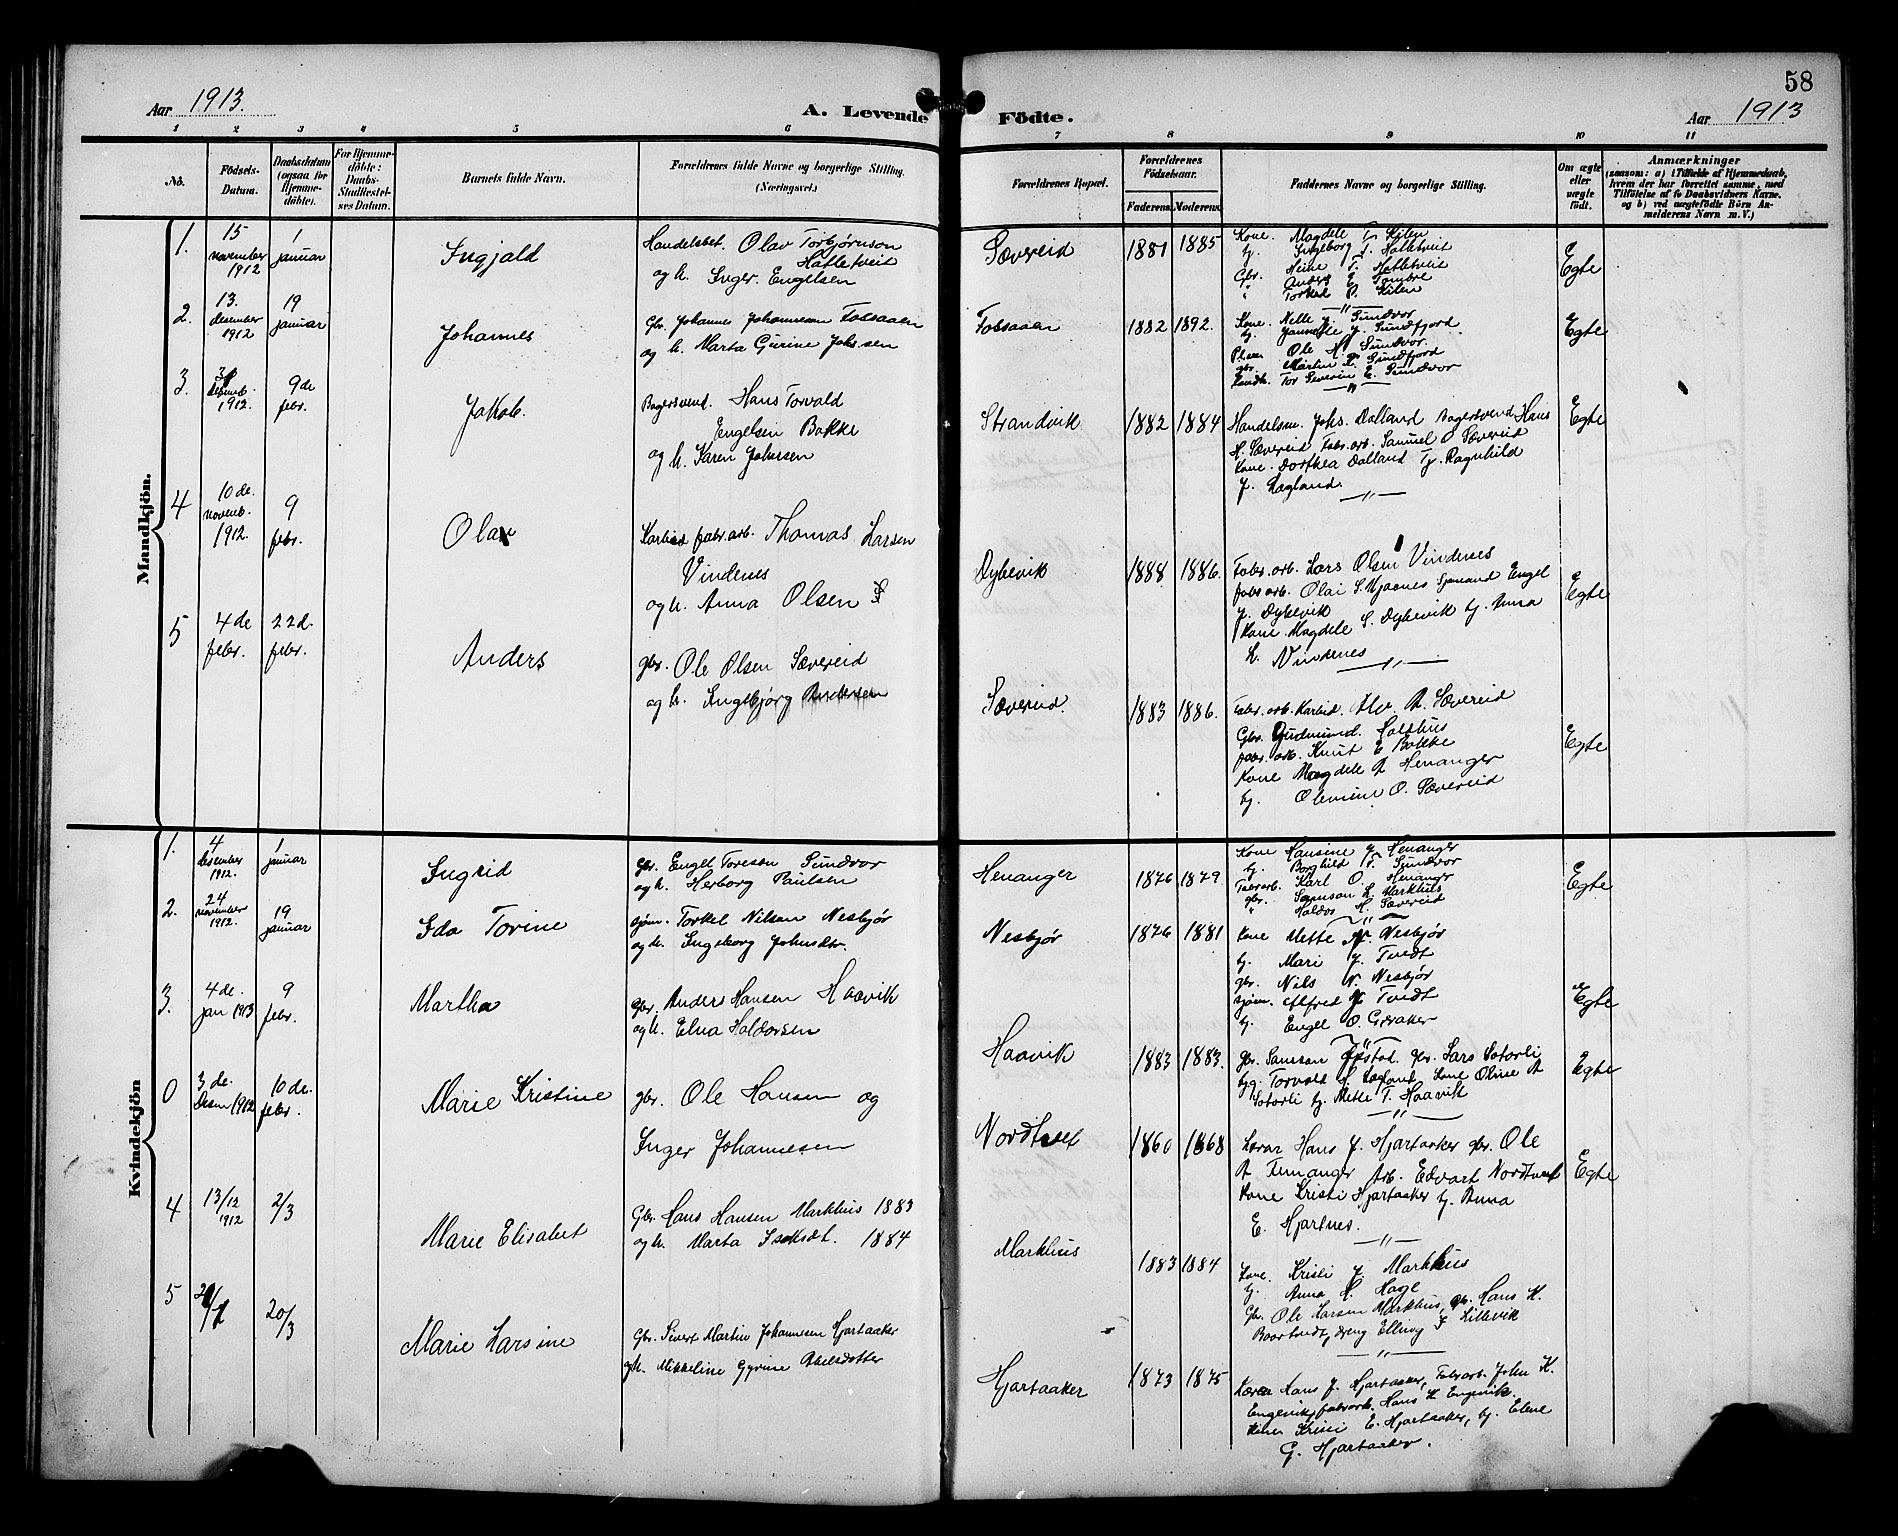 58
Aar 1913.
A. Levende Födte.
Aar 1913
1 2 3 4 5 6 7 8 9 10 11
No.
Födsels-Datum.
Daabsdatum (ogsaa for Hjemmedöbte).
For Hjemmedöbte: Daabs-Stadfæstelses Datum.
Barnets fulde Navn.
Forældrenes fulde Navne og borgerlige Stilling. (Næringsvei.)
Forældrenes Bopæl.
Forældrenes Födselsaar.
Faderens. Moderens.
Faddernes Navne og borgerlige Stilling.
Om ægte eller uægte födt.
Anmærkninger
(saasom: a) i Tilfælde af Hjemmedaab, hvem der har forrettet samme, med Tilföielse af to Daabsvidners Navne. og b) ved uægtefödte Börn Anmelderens Navn m. V.)
Mandkjön.
1. 15 november 1912
1 januar
Ingjald
Handelsbet. Olav Torbjørnson
Hatletveit
og h. Inger Engelsen
Sævereid
1881 1885
Kone. Magdele T. Kilen
tj. Ingeborg T. Hatletveit
Gbr. Neine T. Hatletveit
Anders E. Tombre
" Torkel O. Kilen
Egte
2. 13. desember 1912
19 januar
Johannes
Gbr. Johannes Johannesen Fossaaen
og h. Marta Gurine Johs.sen
Fossaaen
1882 1892.
Kone. Nelle J. Sundvor
tj. J. Sundfjord
Ole N. Sundvor.
gbr. Martin L. Sundfjord
Tor Severin E. Sundvor
Egte
3. desemb. 1912.
9 de febr.
Jakob.
Bagersvend. Hans Torvald
Engelsen Bakke
og h. Karen Johnsen
Strandvik
1882 1884
Handelsm. Johs. Dalland Bagersvend Hans
H. Sævereid Fabr. arb. Samuel O Sævereid
Kone. Dorthea Dalland Tj. Ragnhild
J. Lægland.
Egte
4 10 de. novemb. 1912.
9 febr.
Olav
Karbid fabr. arb. Thomas Larsen
Vindenes
og h. Anna Olsen
Dybevik
1888 1886.
Fabr. arb. Lars Olsen Vindenes
fabr arb. Olai S. Engel
J. Dybevik
Kone Magdele S. Dybevik tj. Anna
L. Vindenes
Egte
5 4 de febr.
22 d. febr.
Anders
gbr. Ole Olsen Sævereid
og h. Ingebjørg Andersen
Sævereid.
1883 1886.
Fabr. arb. Karbid. A. Sævereid
Gbr. Gudmund. Holthus
fabr. arb. Knut E Bakke
Kone Magdele A Henanger
tj. Olemine O. Sævereid
Egte
Kvindekjön
1. 4 desember 1912.
1 januar
Ingrid
gbr. Engel Toresen Sundvor
og h. Herborg Paulsen
Henanger
1876 1879
Kone Hansine J Henanger
tj. Borghild T. Sundvor
Fabr arb. Karl O. Henanger
gbr. Samson L. Markhus
" Haldor H. Sævereid
Egte
2. 24 november 1912.
19 januar
Ida Torine
sjøm. Torkel Nilsen Nesbjør
og h. Ingeborg Johnsdtr.
Nesbjør
1876 1881
Kone Mette N. Nesbjør
tj. Mari J. Tvedt
gbr. Nils N. Nesbjør
sjøm. Alfred N Tvedt
tj. Engel O. Gjøsaker
Egte
3. 4 de. jan 1913
9 febr.
Martha
gbr. Anders Hansen Haavik
og h. Elna Haldorsen
Haavik
1883 1883.
gbr. Samson Øfstad. gbr. Lars Sotorli
tyg. Torvald H. Lægland Kone Oline A
Sotorli tj. Mette T. Haavik
Egte
0 3 de. Desm 1912
10 de. febr.
Marie Kristine
gbr. Ole Hansen og
Inger Johannesen
Nordtveit
1860 1868
Lærer Hans J. Hjartaaker gbr. Ole
A Femanger Arb. Edvart Nordtveit
Kone Kristi Hjartaaker tj. Anna
E. Hjartnes.
Egte
4 13/12 1912
2/3
Marie Elisabet
Gbr. Hans Hansen Markhus 1883
og h. Marta Isaksdt. 1884
Markhus
1883 1884
Kone. Kristi J. Markhus
tj. Anna H. Hage
Gbr. Ole Larsen Markhus, gbr. Hans K.
Baartveit, dreng Elling I Lillevik
5
20/3
Marie Larsine
Gbr. Sivert Martin Johannesen Hjartaaker
og h. Mikkeline Gyrine Abelsdotter
Hjartaaker
1873 1875
Lærer Hans J. Hjartaaker, Fabr arb. John K.
Engevik, fabr arb. Hans L Engevik.
Kone Kristi E. Hjartaaker, tj. Elene
G. Hjartaaker.